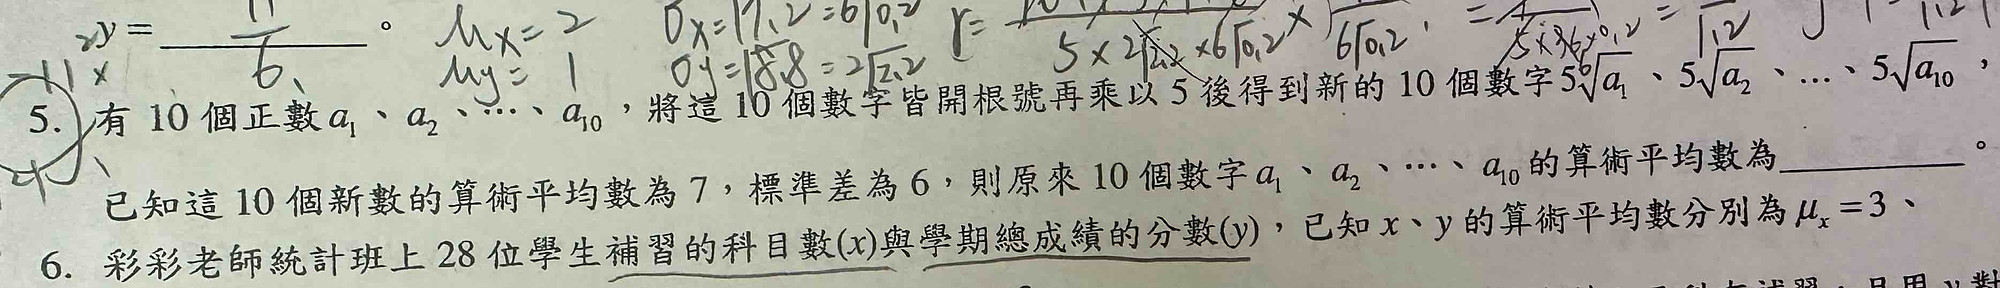 y = 11/6 。 μx = 2 σx = √7.2 = 6√0.2 r =
μy = 1 σy = √8.8 = 2√2.2 5×2√2.2×6√0.2 6√0.2
5. 有 10 個正數 a₁、a₂、…、a₁₀，將這 10 個數字皆開根號再乘以 5 後得到新的 10 個數字 5√a₁、5√a₂、…、5√a₁₀，
已知這 10 個新數的算術平均數為 7，標準差為 6，則原來 10 個數字 a₁、a₂、…、a₁₀ 的算術平均數為________。
6. 彩彩老師統計班上 28 位學生補習的科目數(x)與學期總成績的分數(y)，已知 x、y 的算術平均數分別為 μx = 3、